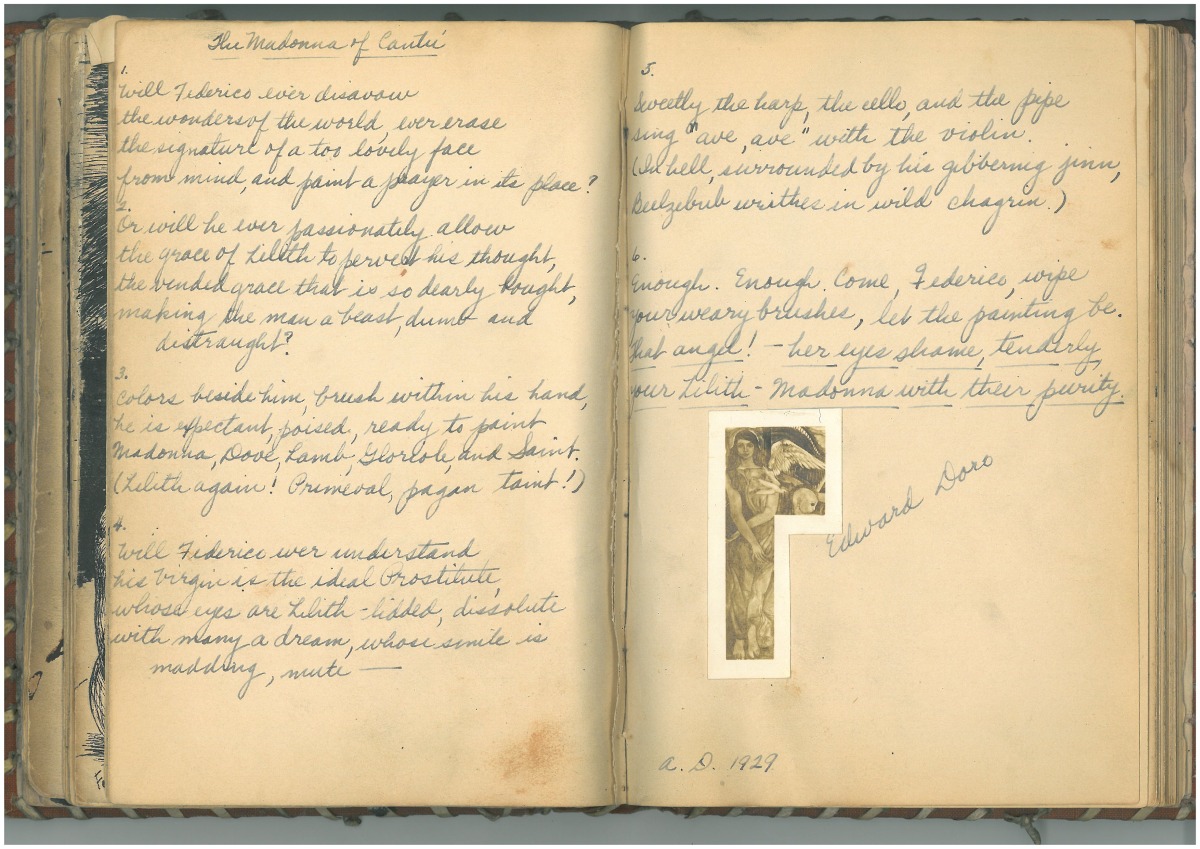 The Madonna of Cantù
1.
Will Federico ever disavow
the wonders of the world, ever erase
the signature of a too lovely face
from mind, and paint a prayer in its place?
2.
Or will he ever passionately allow
the grace of Lilith to pervert his thought,
the vended grace that is so dearly bought,
making the man a beast, dumb and
distraught?
3.
Colors beside him, brush within his hand,
he is expectant, poised, ready to paint
Madonna, Dove, Lamb, Gloriole, and Saint.
(Lilith again! Primeval, pagan taint!)
4.
Will Federico ever understand
his Virgin is the ideal Prostitute,
whose eyes are Lilith-lidded, dissolute
with many a dream, whose smile is
madding, mute —
5.
Sweetly the harp, the cello, and the pipe
sing "ave, ave" with the violin.
(In hell, surrounded by his gibbering jinn,
Beelzebub writhes in wild chagrin.)
6.
Enough. Enough. Come, Federico, wipe
your weary brushes, let the painting be.
That angel! — her eyes shame, tenderly,
your Lilith-Madonna with their purity.
Edward Doro
A. D. 1929